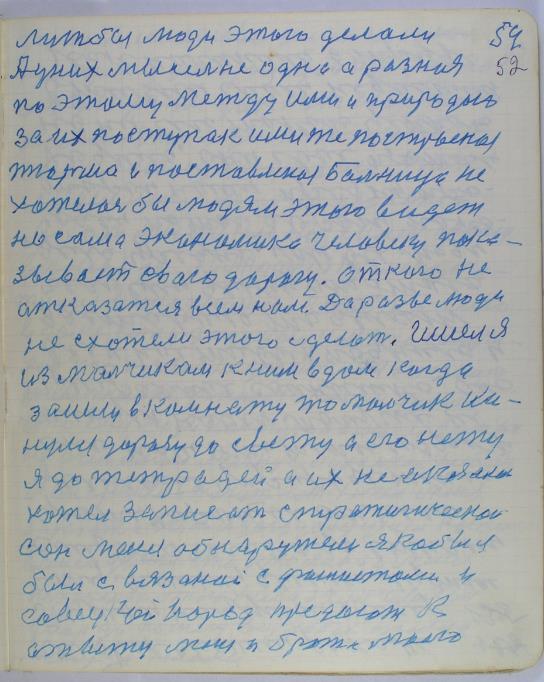 лутбы люди этого делали 54
А у них мысли не одна а разная 52
по этому между ими и природаю
за их поступак ими же построеная
тюрма и поставленая Балница не
хотелос бы людям этого видет
но сама экономика человеку пока-
зывает сваго дорогу. от кого не
отказатся всем нам. Да разве люди
не схотели этого сделат. И шел я
из малчикам к ним в дом когда
зашли в комнату то малчик ки-
нулся дорогу до свету а его нету
я до тетрадей а их не
хотел записат стратигической
сон меня обнаружели якобы я
был с вязаной с фашистами и
совецкой народ предават к
ответу меня и брат много